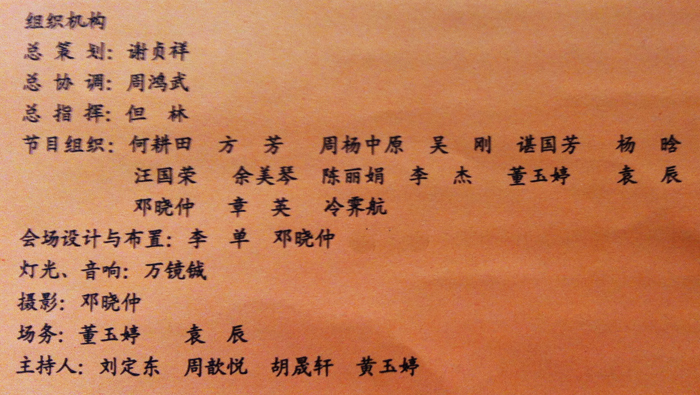 组织机构
总 策 划：谢贞祥
总 协 调：周鸿武
总 指 挥：但 林
节目组织：何耕田 方 芳 周杨中原 吴 刚 谌国芳 杨 晗
汪国荣 余美琴 陈丽娟 李 杰 董玉婷 袁 辰
邓晓仲 章 英 冷霁航
会场设计与布置：李 单 邓晓仲
灯光、音响：万镜钺
摄影：邓晓仲
场务：董玉婷 袁 辰
主持人：刘定东 周歆悦 胡晟轩 黄玉婷